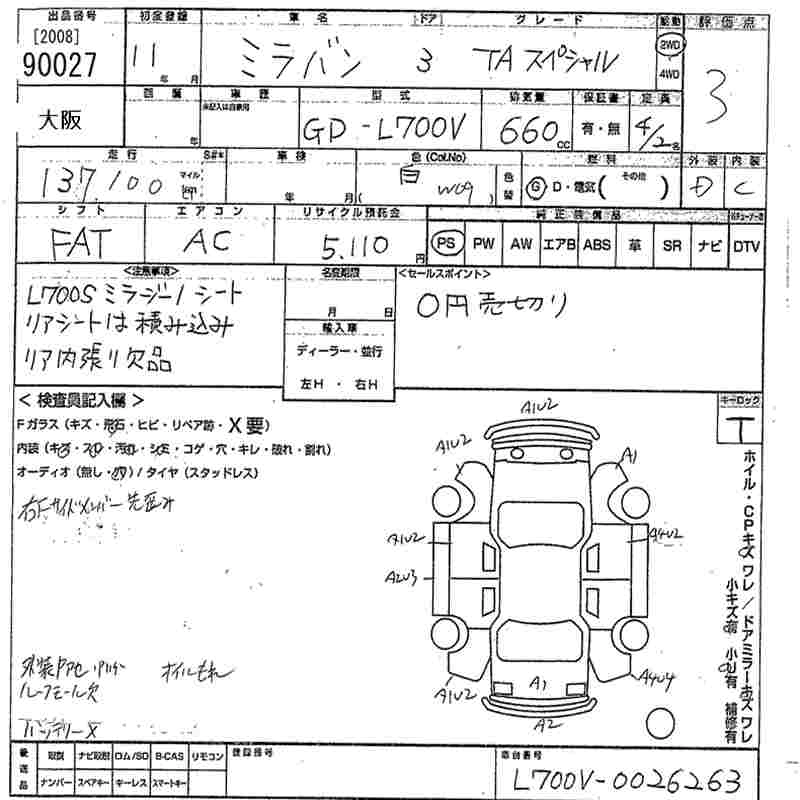 出品番号 初度登録 車名 ドア グレード 駆動 評価点
[2008]
90027 11 年 月 ミラバン 3 TAスペシャル 2WD 4WD 3
大阪
車歴 型式 排気量 保証書 定員
年 GD-L700V 660 cc 有・無 4/2名
走行 車検 色(Col.No) 色替 燃料 外装 内装
137,100 マイル 年 月 白 ( W09 ) G D・電気( その他 ) D C
シフト エアコン リサイクル預託金 純正装備品
FAT AC 5,110円 PS PW AW エアB ABS 革 SR ナビ DTV
<注意事項> 名変期限 <セールスポイント>
L700S ミラジーノ シート 月 日 0円売切り
リアシートは積み込み 輸入車
リア内張り欠品 ディーラー・並行
左H・右H
<検査員記入欄> キーロック
Fガラス(キズ・飛石・ヒビ・リペア跡・X要) T
内装(キズ・スレ・汚れ・シミ・コゲ・穴・キレ・破れ・割れ)
オーディオ(無し・
)/タイヤ(スタッドレス)
右Fサイドメンバー先歪み
ルーフモール欠
オイルもれ
バッテリーX
A1U2
A1U2 A1
A1U2 A4U2
A2U3
A1U2 A1 A4U4
A2
ホイル・CPキズ ワレ/ドアミラーキズ ワレ
小キズ有 小U有 補修有
後送品 取説 ナビ取説 ロム/SD B-CAS リモコン 登録番号 車台番号
ナンバー スペアキー キーレス スマートキー L700V-0026263